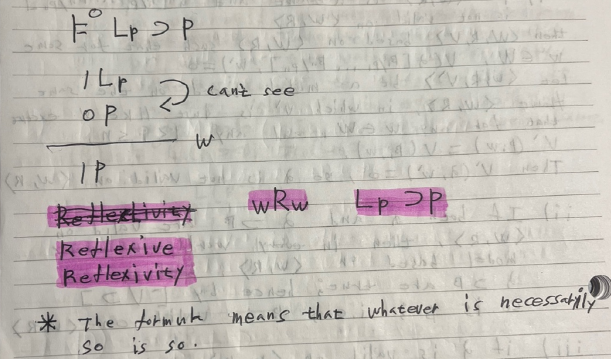 ⊨° Lp ⊃ P
1 Lp
can't see
0 P
W
1 P
Reflexivity wRw Lp ⊃ P
Reflexive
Reflexivity
* The formula means that whatever is necessarily
so is so.